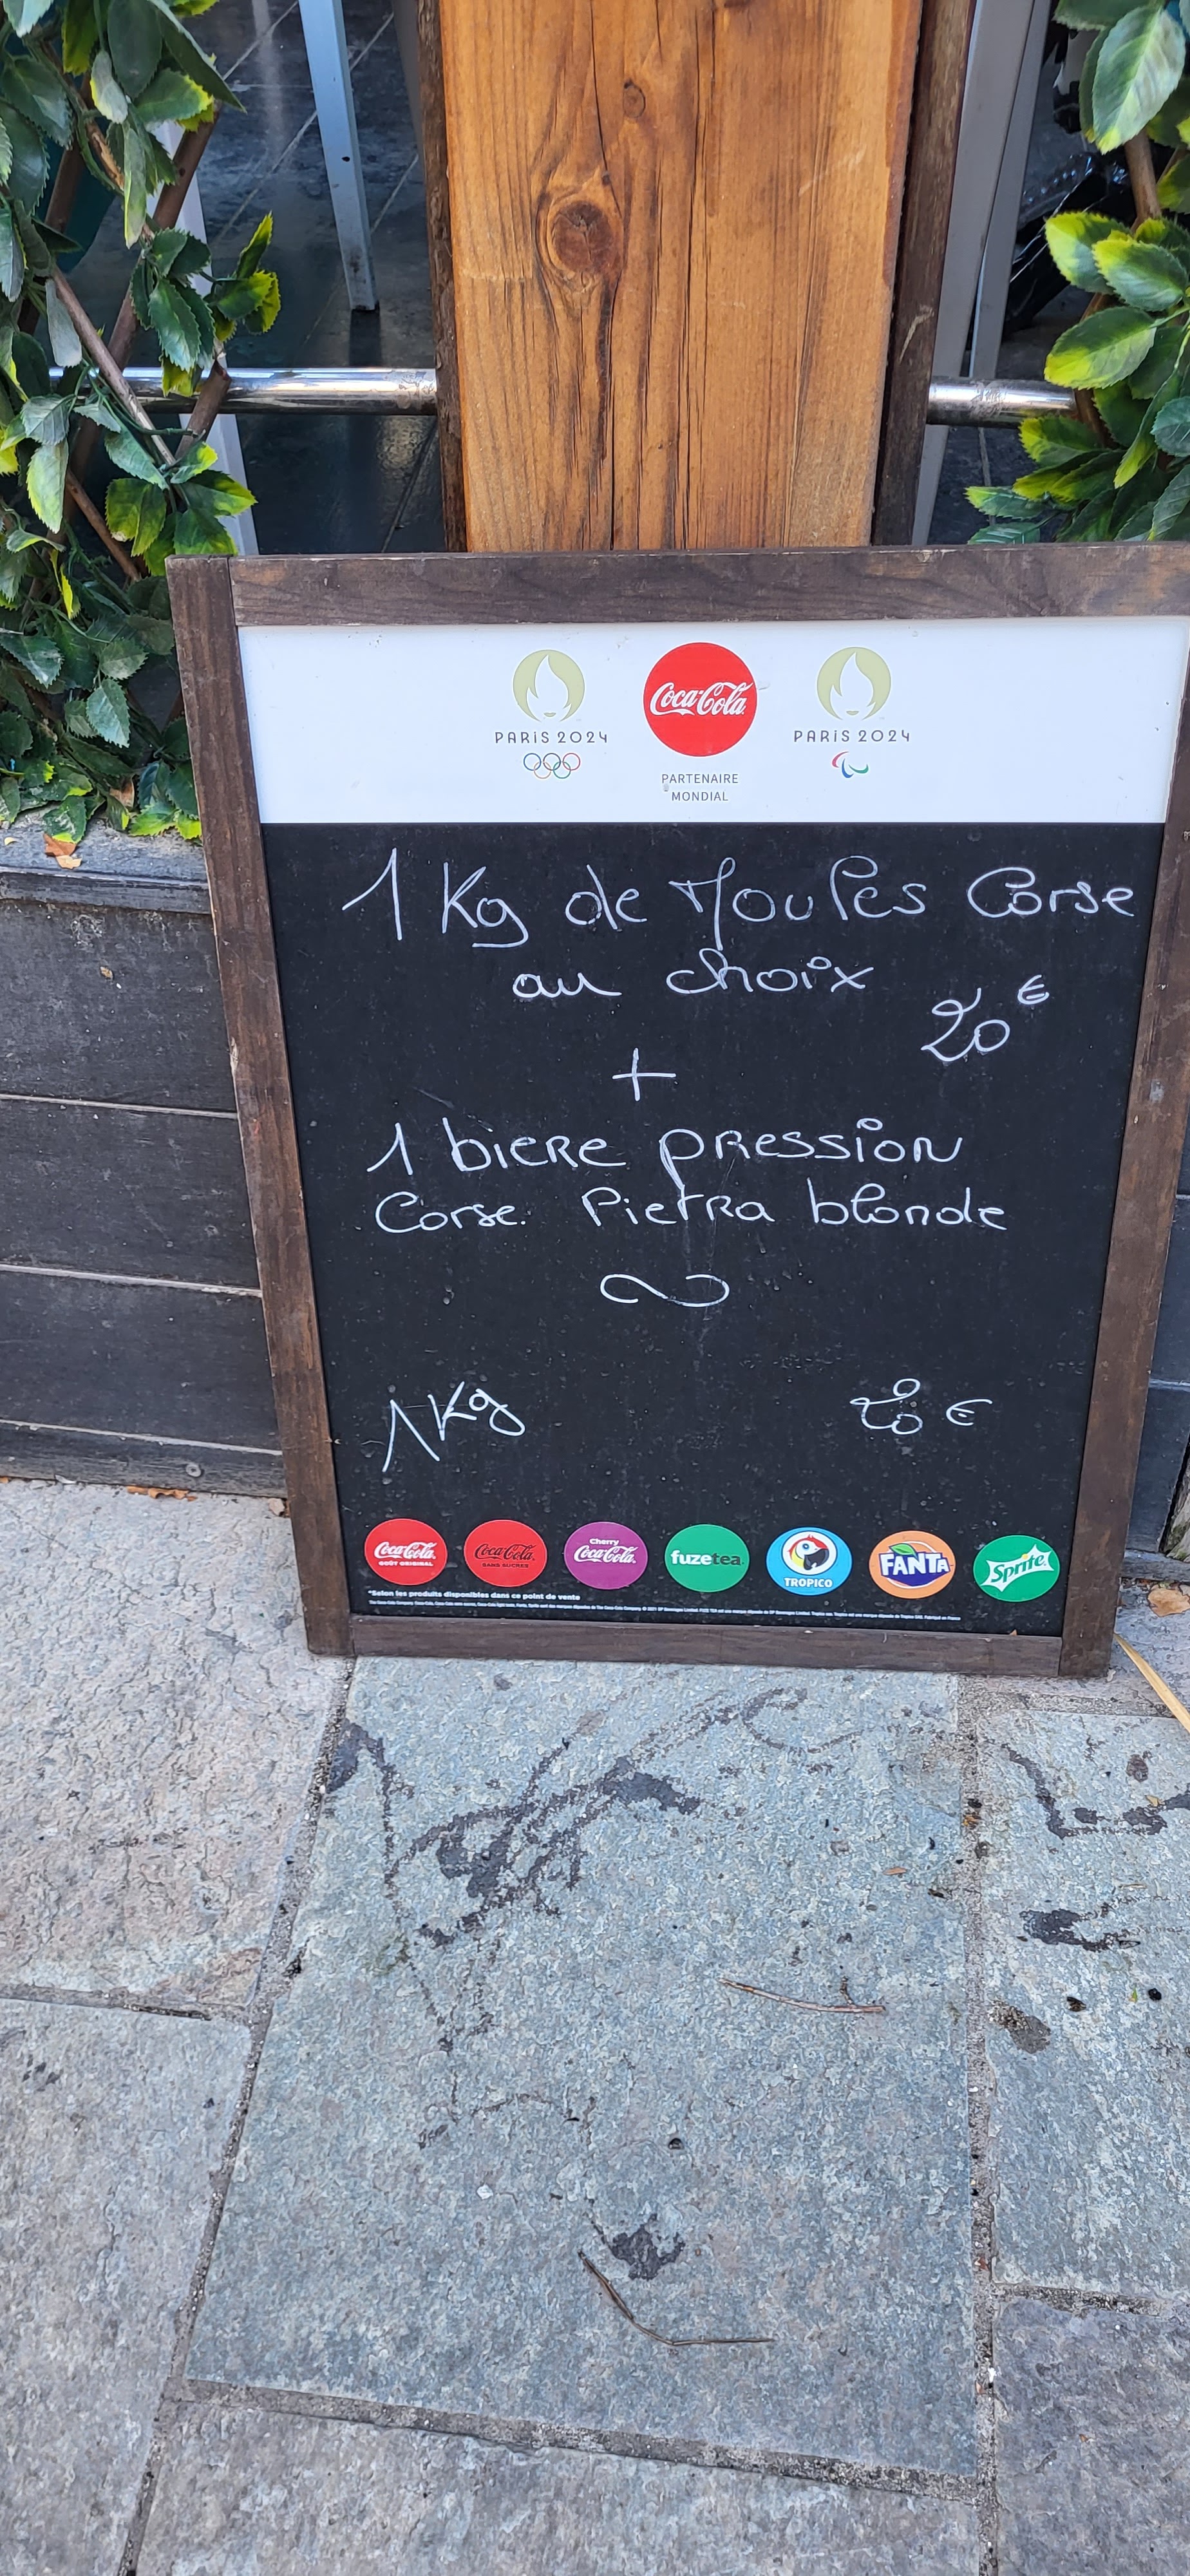 PARIS 2024
Coca-Cola
PARIS 2024
PARTENAIRE
MONDIAL
1 Kg de Moules Corse
au choix
20 €
+
1 biere pression
Corse. Pietra blonde
1 Kg
20 €
Coca-Cola
GOÛT ORIGINAL
Coca-Cola
SANS SUCRES
Cherry
Coca-Cola
fuzetea
TROPICO
FANTA
Sprite
*Selon les produits disponibles dans ce point de vente